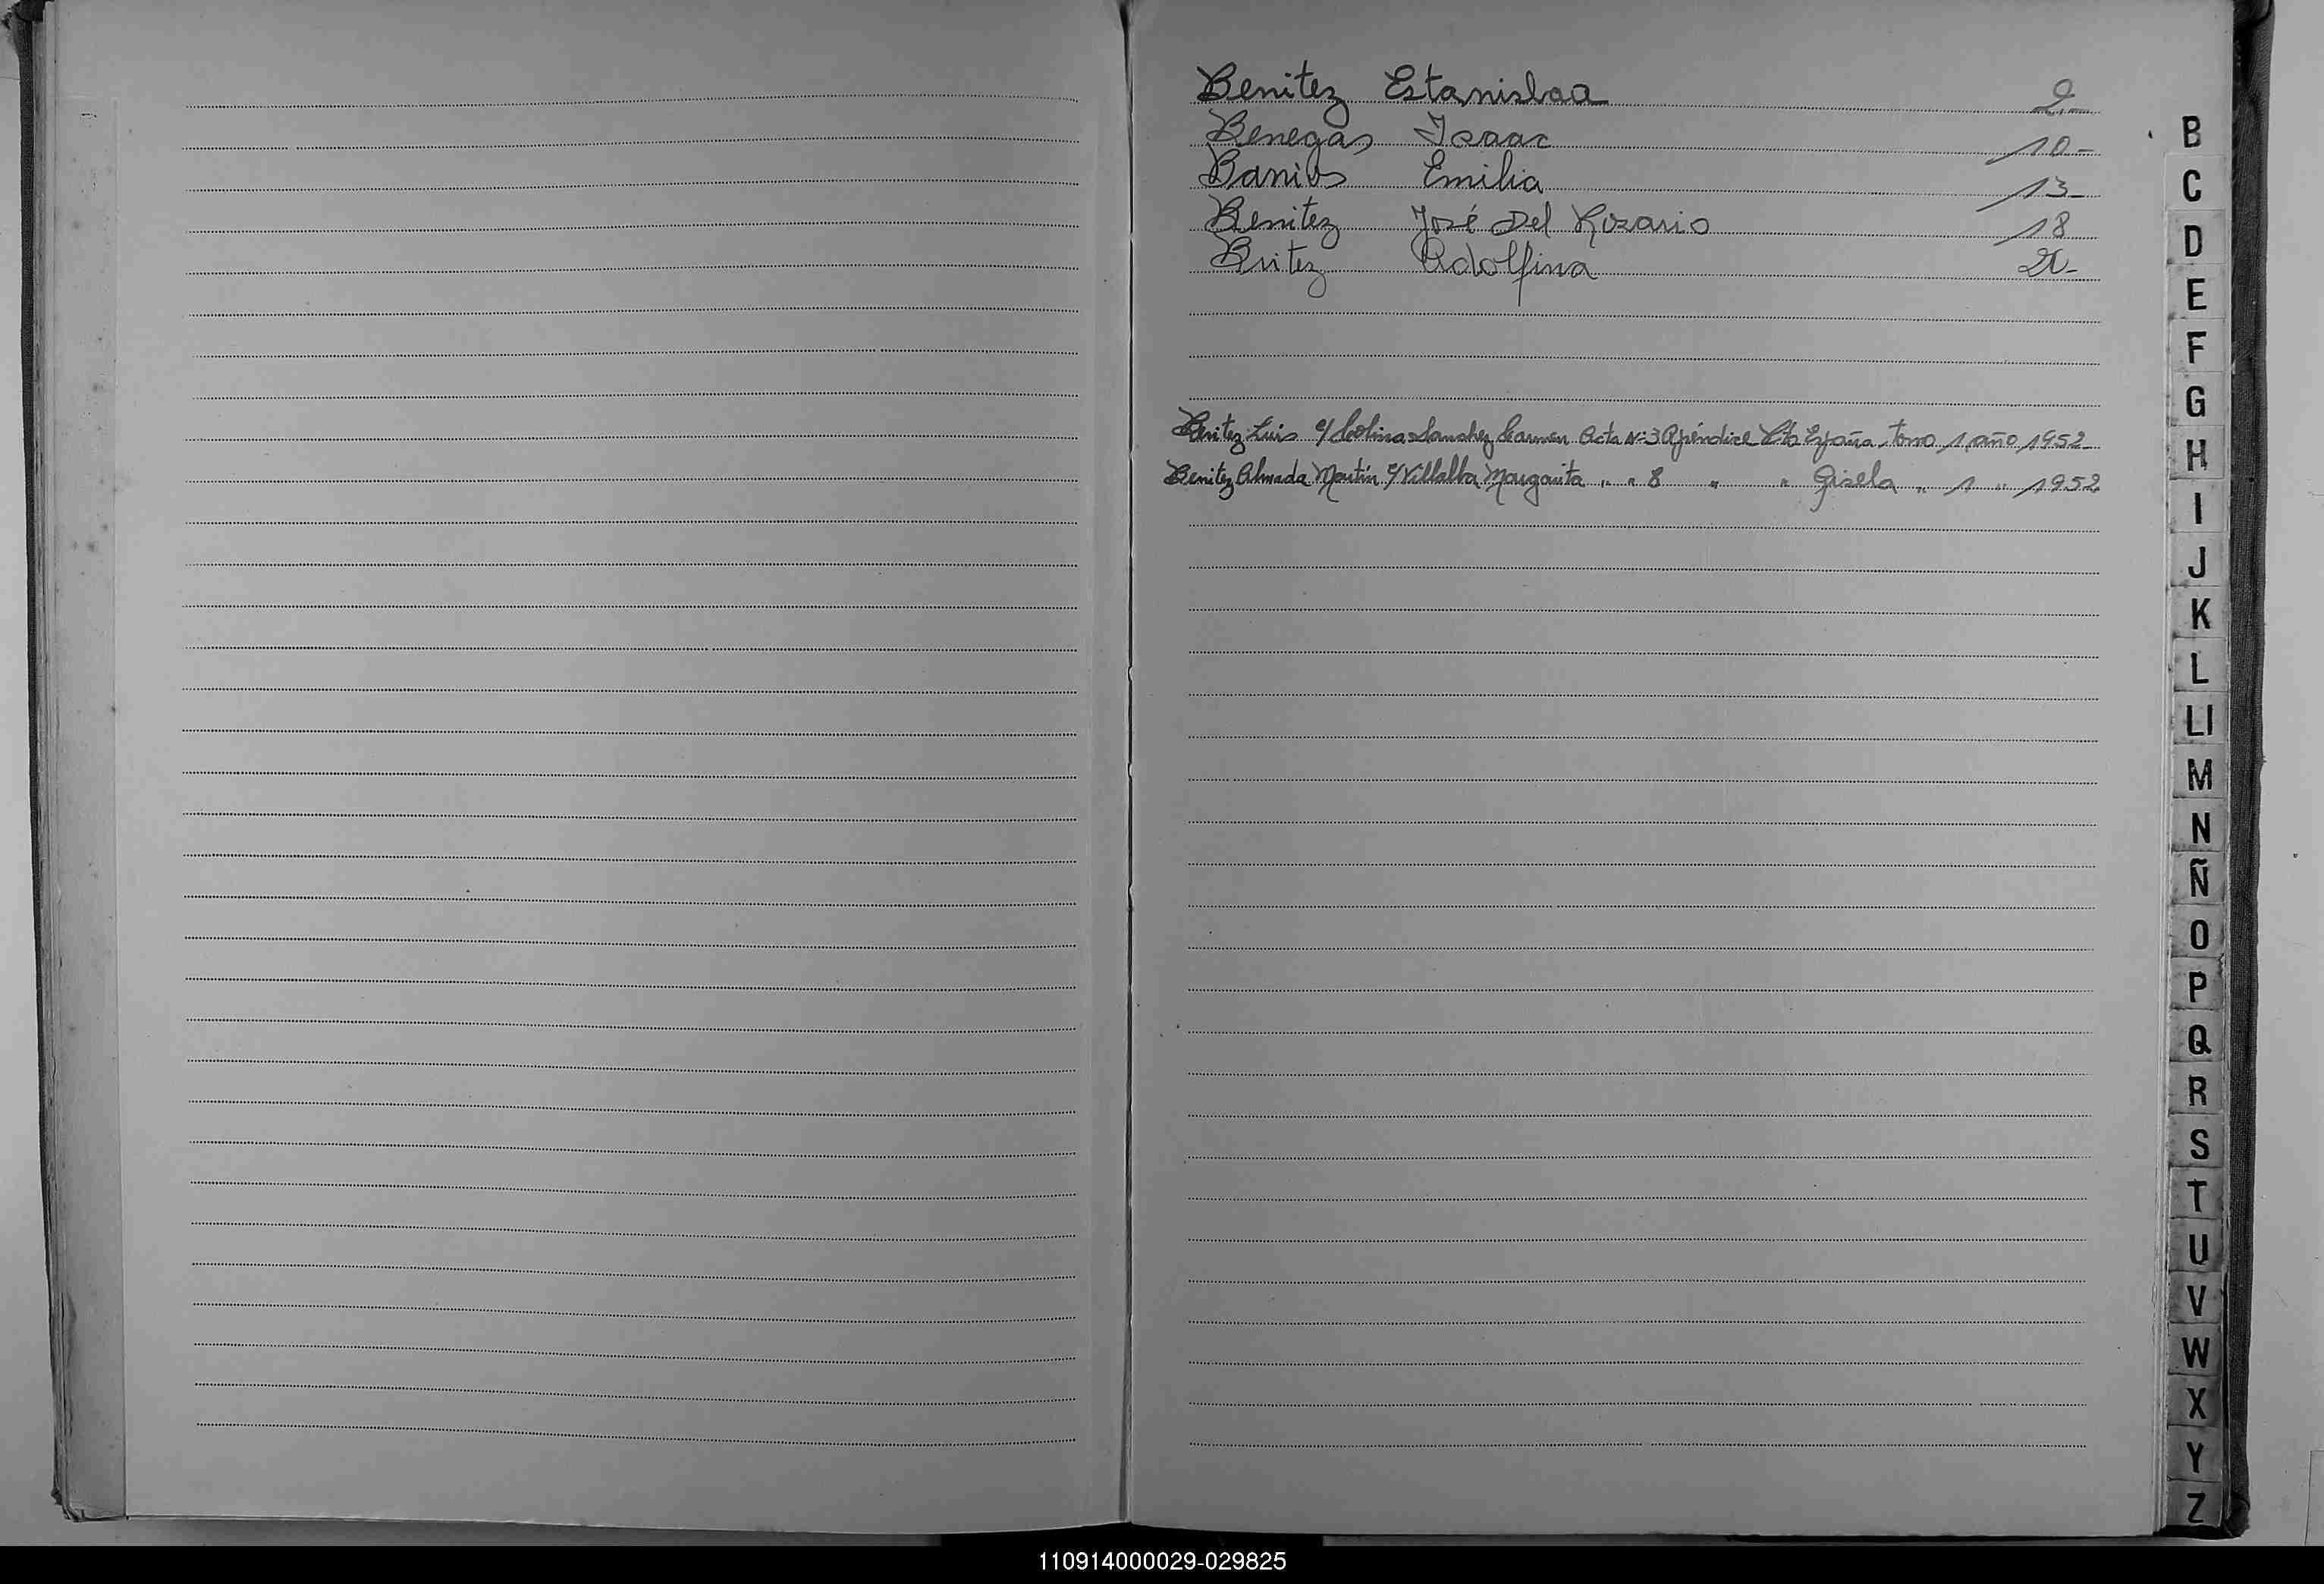 Benitez Estanislaa 2
Benegas Isaac 10-
Banios Emilia 13-
Benitez José Del Rosario 18
Britez Adolfina 20-
Benitez Luis c/ Molinas Sanchez Carmen Acta Nº 3 Apéndice Cta España, tomo 1, año 1952
Benitez Almada Martín c/ Villalba Margarita " " 8 " " Gisela " 1 " 1952
B
C
D
E
F
G
H
I
J
K
L
Ll
M
N
Ñ
O
P
Q
R
S
T
U
V
W
X
Y
Z
110914000029-029825